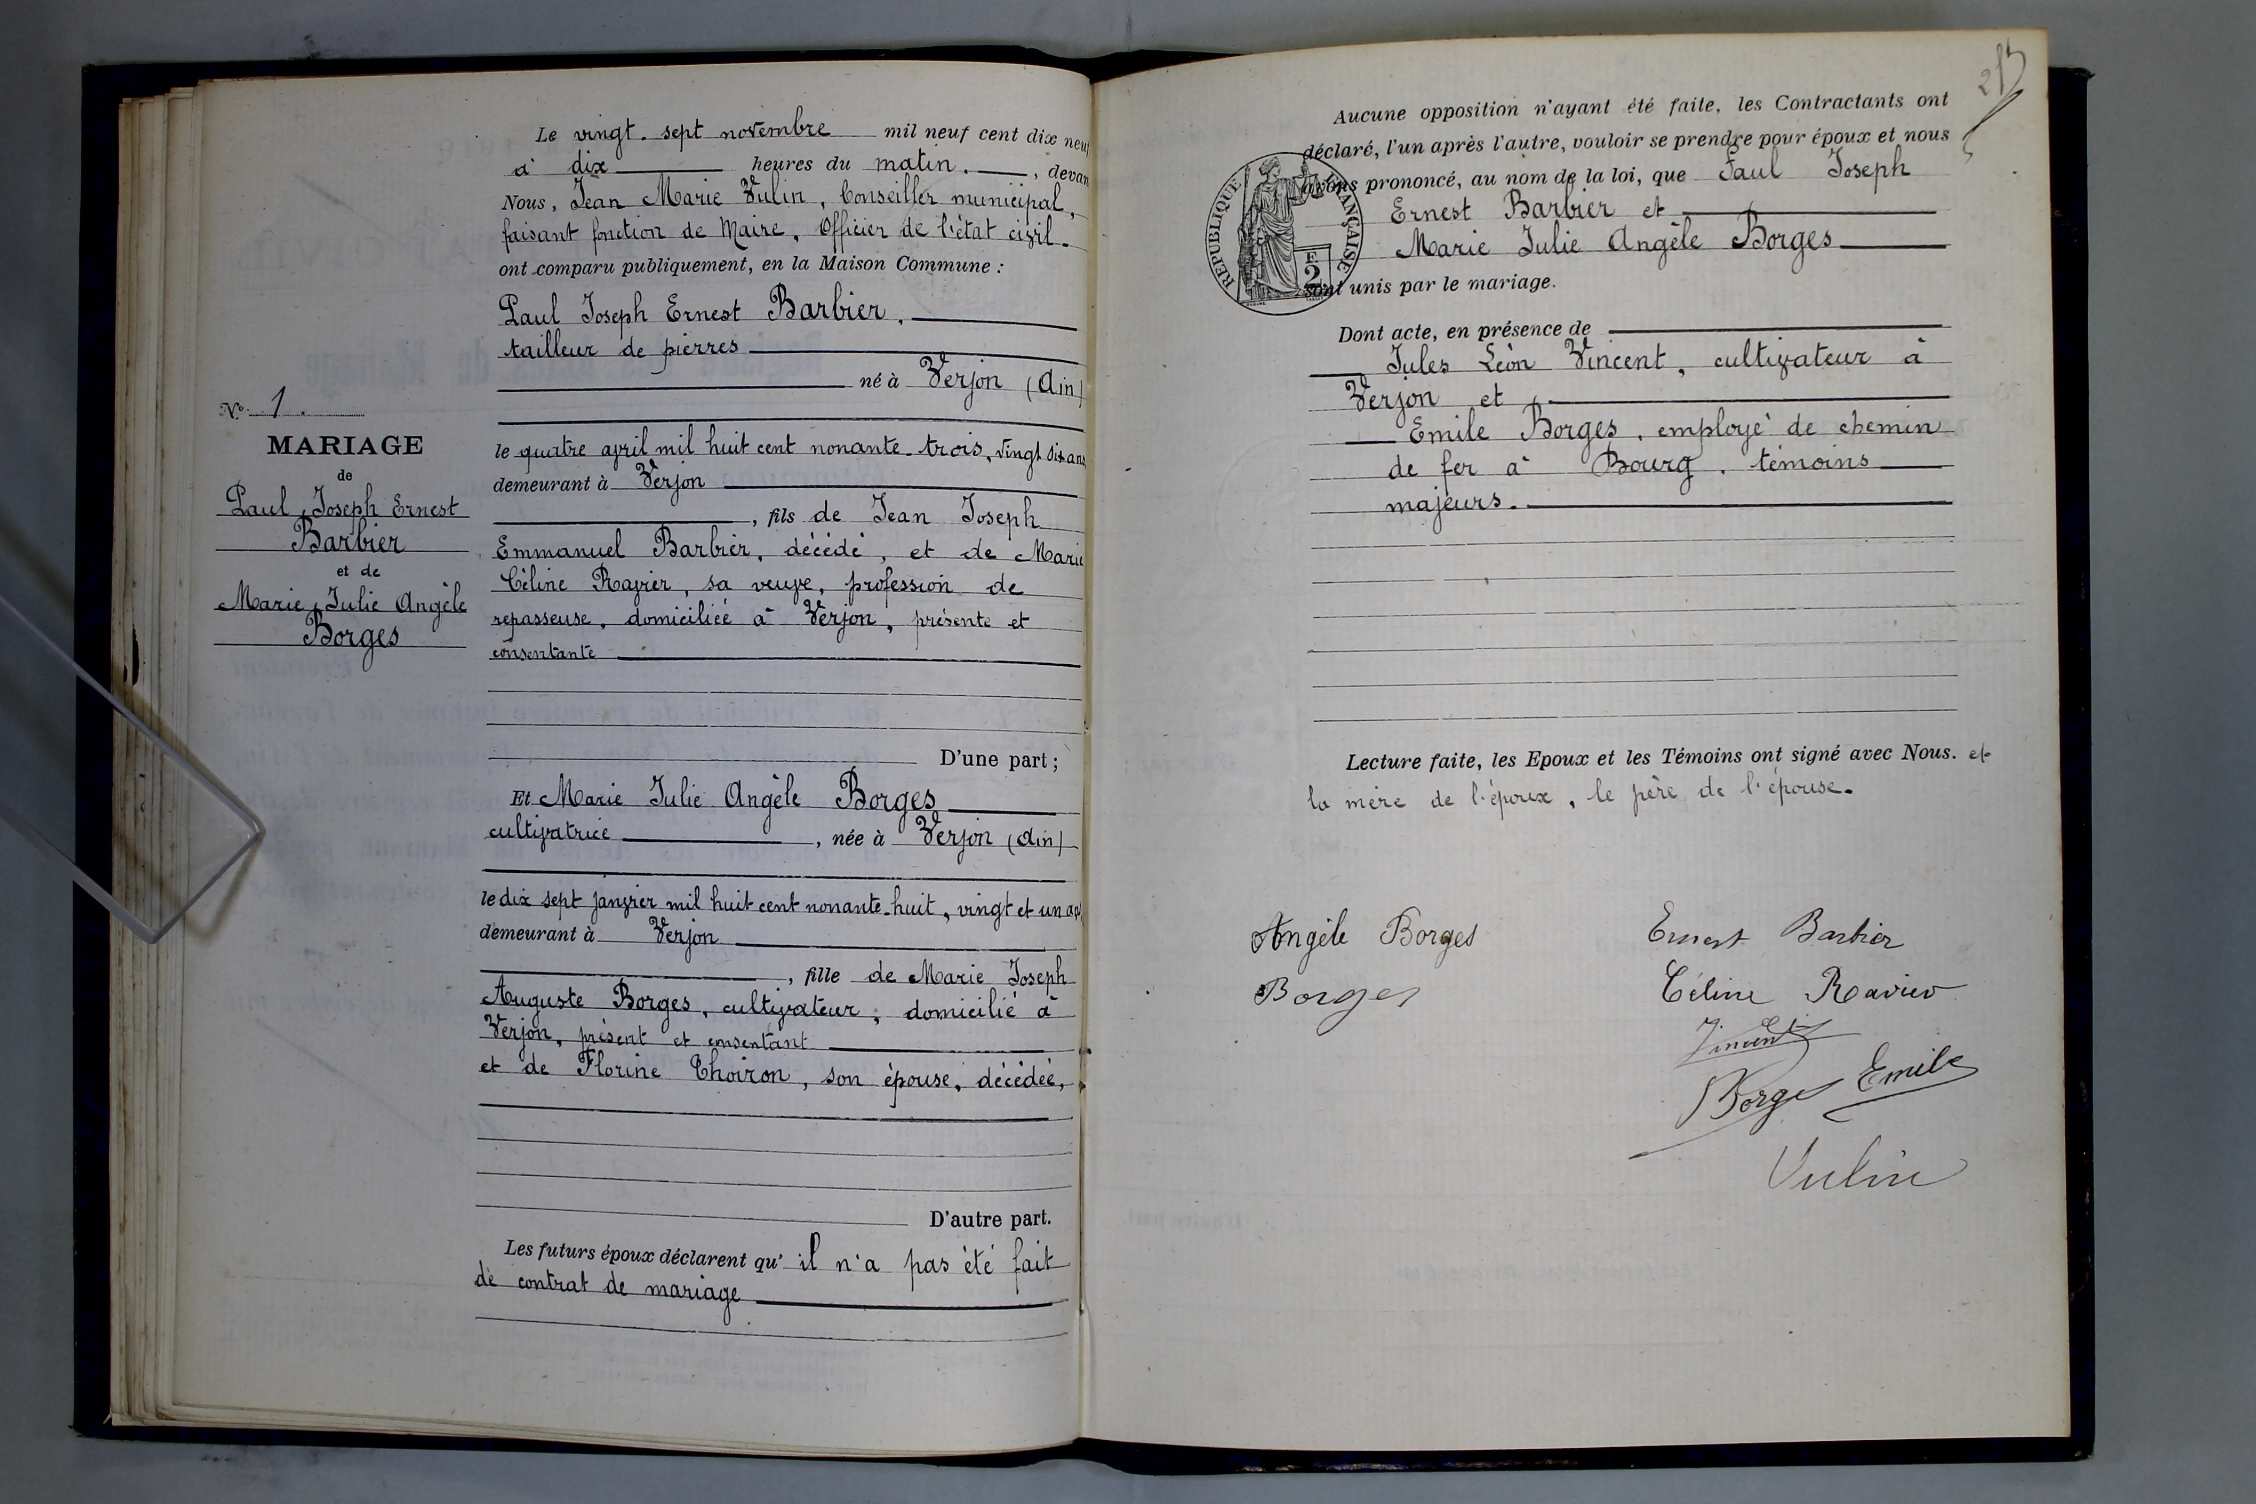 Le vingt-sept novembre mil neuf cent dix neuf
à dix heures du matin, devan
Nous, Jean Marie Vulin, Conseiller municipal,
faisant fonction de Maire, Officier de l'état civil.
ont comparu publiquement, en la Maison Commune :
Paul Joseph Ernest Barbier,
tailleur de pierres
né à Verjon (Ain)
le quatre avril mil huit cent nonante-trois, vingt six ans
demeurant à Verjon
, fils de Jean Joseph
Emmanuel Barbier, décédé, et de Marie
Céline Ravier, sa veuve, profession de
repasseuse, domiciliée à Verjon, présente et
consentante
D'une part ;
Et Marie Julie Angèle Borges
cultivatrice, née à Verjon (Ain)
le dix sept janvier mil huit cent nonante-huit, vingt et un ans
demeurant à Verjon
, fille de Marie Joseph
Auguste Borges, cultivateur, domicilié à
Verjon, présent et consentant
et de Florine Thoiron, son épouse, décédée,
D'autre part.
Les futurs époux déclarent qu'il n'a pas été fait
de contrat de mariage
No 1.
MARIAGE
de
Paul Joseph Ernest
Barbier
et de
Marie Julie Angèle
Borges
Aucune opposition n'ayant été faite, les Contractants ont
déclaré, l'un après l'autre, vouloir se prendre pour époux et nous
avons prononcé, au nom de la loi, que Paul Joseph
Ernest Barbier et
Marie Julie Angèle Borges
sont unis par le mariage.
REPUBLIQUE FRANÇAISE
F
2
Dont acte, en présence de
Jules Léon Vincent, cultivateur à
Verjon et
Emile Borges, employé de chemin
de fer à Bourg, témoins
majeurs.
Lecture faite, les Epoux et les Témoins ont signé avec Nous. et
la mère de l'époux, le père de l'épouse.
Angèle Borges
Ernest Barbier
Borges
Céline Ravier
Vincent
Borges Emile
Vulin